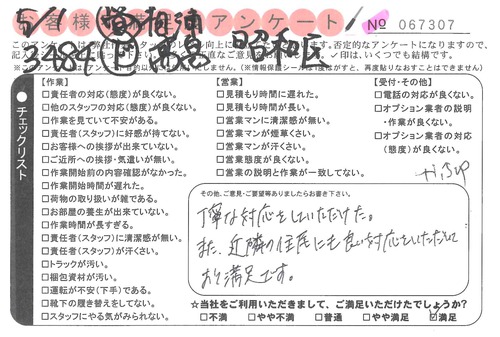 お客様アンケート
5/1
No 067307
昭和区
このアンケートは
否定的なアンケートになりますので、
✓印は、いくつでも結構です。
(※情報保護シールは1度はがすと、再度貼りなおすことはできません)
●チェックリスト
【作業】
□責任者の対応(態度)が良くない。
□他のスタッフの対応(態度)が良くない。
□作業を見ていて不安がある。
□責任者(スタッフ)に好感が持てない。
□お客様への挨拶が出来ていない。
□ご近所への挨拶・気遣いが無い。
□作業開始前の内容確認がなかった。
□作業開始時間が遅れた。
□荷物の取り扱いが雑である。
□お部屋の養生が出来ていない。
□作業時間が長すぎる。
□責任者(スタッフ)に清潔感が無い。
□責任者(スタッフ)が汗くさい。
□トラックが汚い。
□梱包資材が汚い。
□運転が不安(下手)である。
□靴下の履き替えをしてない。
□スタッフにやる気がみられない。
【営業】
□見積もり時間に遅れた。
□見積もり時間が長い。
□営業マンに清潔感が無い。
□営業マンが煙草くさい。
□営業マンが汗くさい。
□営業態度が良くない。
□営業の説明と作業が一致してない。
【受付・その他】
□電話の対応が良くない。
□オプション業者の説明
・作業が良くない。
□オプション業者の対応
(態度)が良くない。
その他、ご意見・ご要望等ありましたらお書き下さい。
丁寧な対応をしていただけた。
また、近隣の住民にも良い対応をしていただいて
おり満足です。
☆当社をご利用いただきまして、ご満足いただけたでしょうか?
□不満 □やや不満 □普通 □やや満足 ☑満足